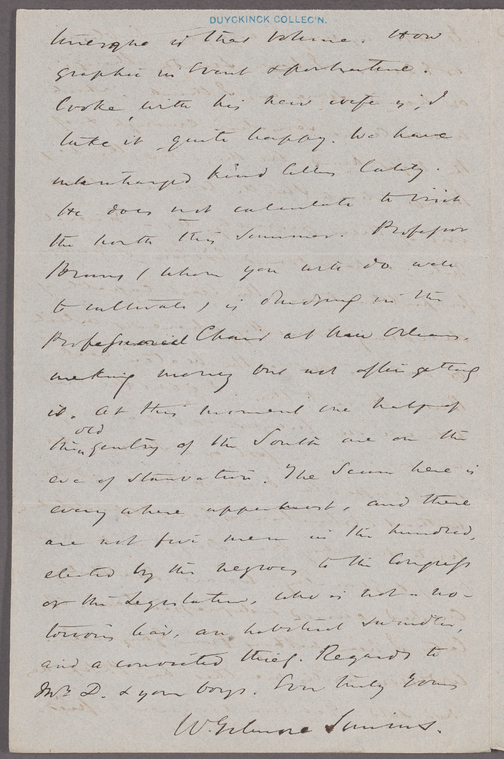 DUYCKINCK COLLEC'N.
is that volume. How
graphic in event & portraiture.
Cooke, with his new wife is, I
take it, quite happy. We have
interchanged kind letters lately.
He does not calculate to visit
the North this Summer. Professor
(whom you will do well
to cultivate) is drudging in the
Professorial Chair at New Orleans.
making money but not often getting
it. At this moment one half of
the old gentry of the South are on the
eve of starvation. The Scum here is
every where uppermost, and there
are not five men in the hundred,
elected by the negroes to the Congress
or the Legislature, who is not a no-
torious liar, an habitual swindler,
and a convicted thief. Regards to
Mrs D. & your boys. Ever truly Yours
W. Gilmore Simms.